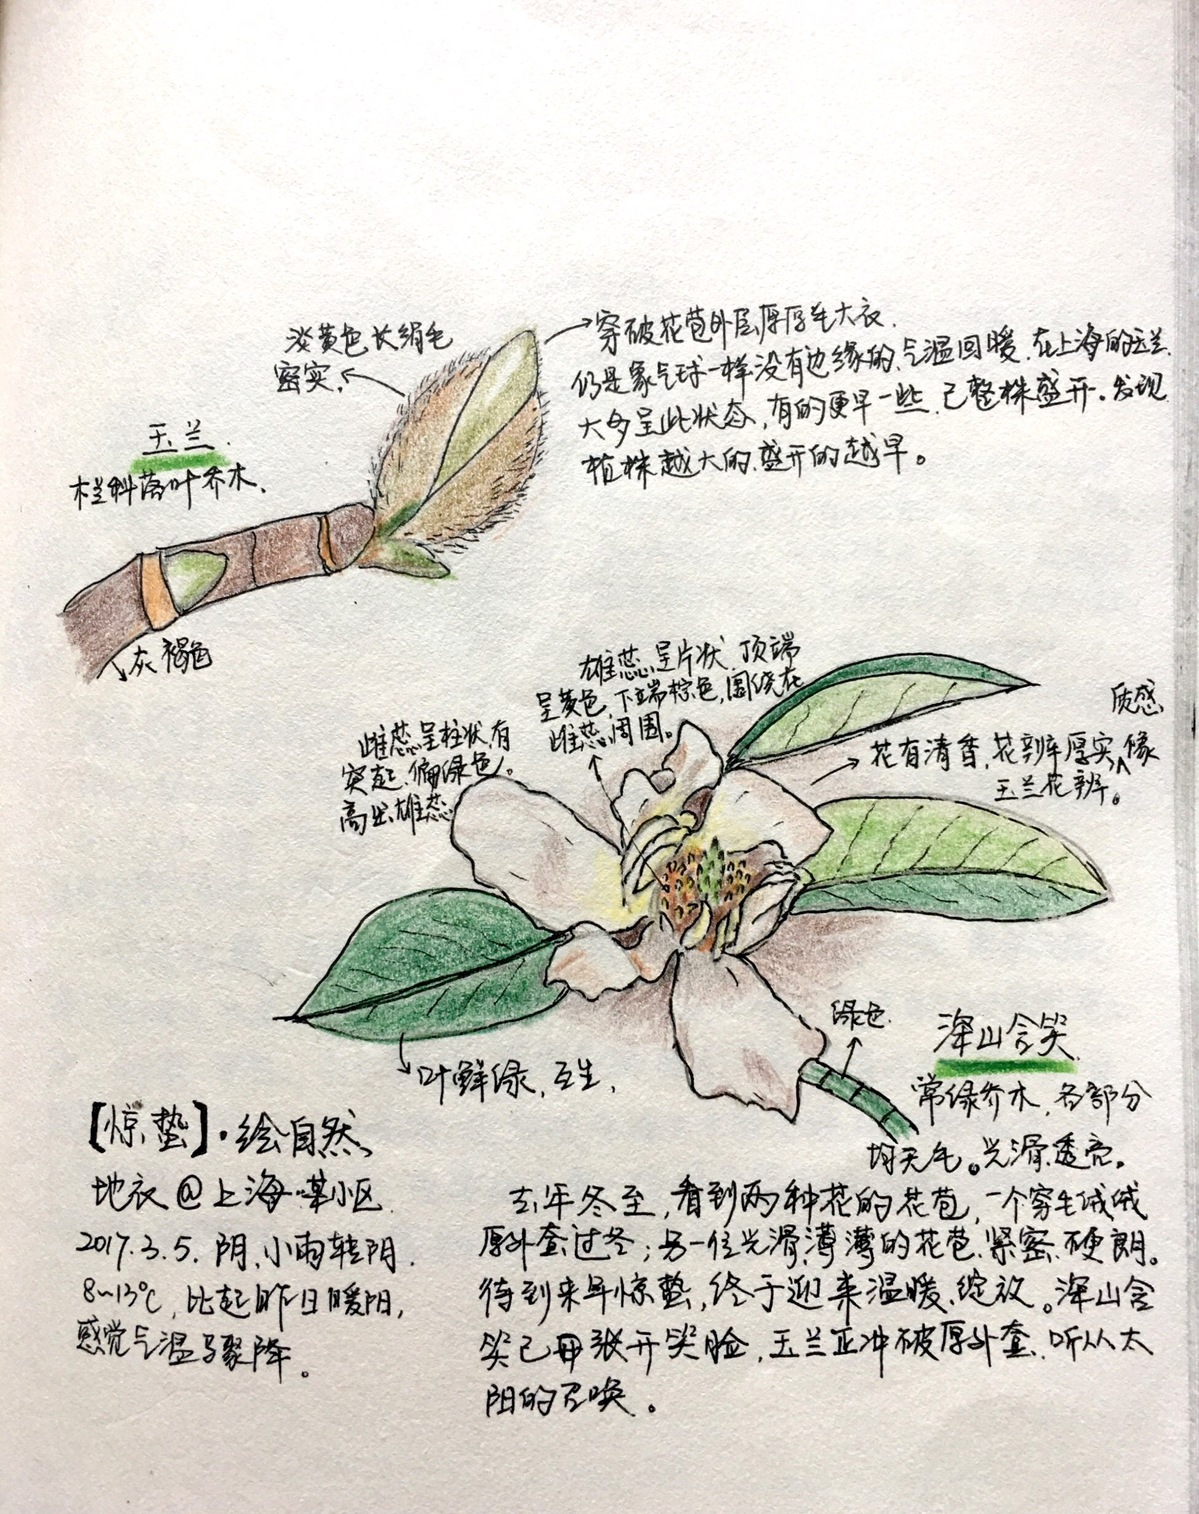 淡黄色长绢毛
密实.
穿破花苞外层厚厚毛大衣.
仍是象气球一样没有边缘的.气温回暖.在上海的玉兰
大多呈此状态,有的更早一些,已整株盛开。发现
植株越大的.盛开的越早。
玉兰.
木兰科落叶乔木.
灰褐色
雄蕊呈片状.顶端
呈黄色,下端棕色,围绕在
雌蕊周围。
雌蕊呈柱状,有
突起.偏绿色。
高出雄蕊
质感
花有清香,花辨厚实,像
玉兰花辨。
叶鲜绿.互生.
绿色.
深山含笑.
常绿乔木.各部分
均无毛。光滑透亮。
[惊蛰]·绘自然
地衣@上海·某小区.
2017.3.5.阴.小雨转阴.
8~13℃,比起昨日暖阳,
感觉气温骤降。
去年冬至,看到两种花的花苞,一个穿毛绒绒
厚外套过冬;另一位光滑薄薄的花苞.紧密.硬朗。
待到来年惊蛰,终于迎来温暖.绽放。深山含
笑已张开笑脸,玉兰正冲破厚外套.听从太
阳的召唤。